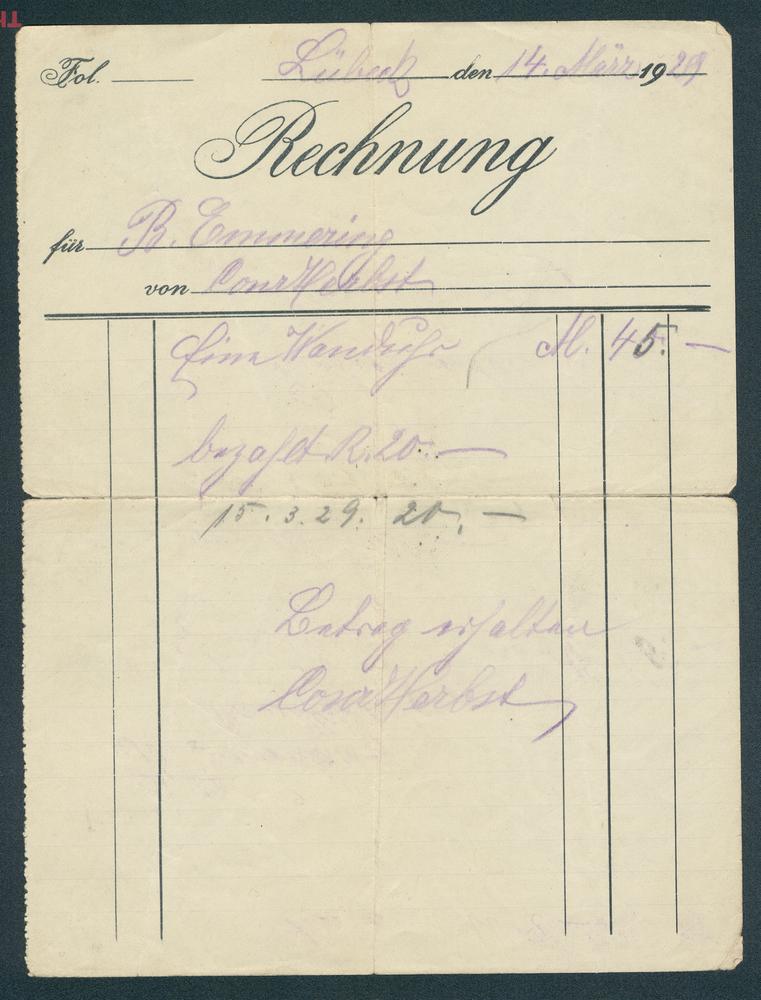 Fol. Lübeck den 14. März 1929
Rechnung
für B. Emmering
von Conr Herbst
Eine Wanduhr M. 45.—
bezahlt R. 20.—
15.3.29. 20,—
Betrag erhalten
Conr Herbst